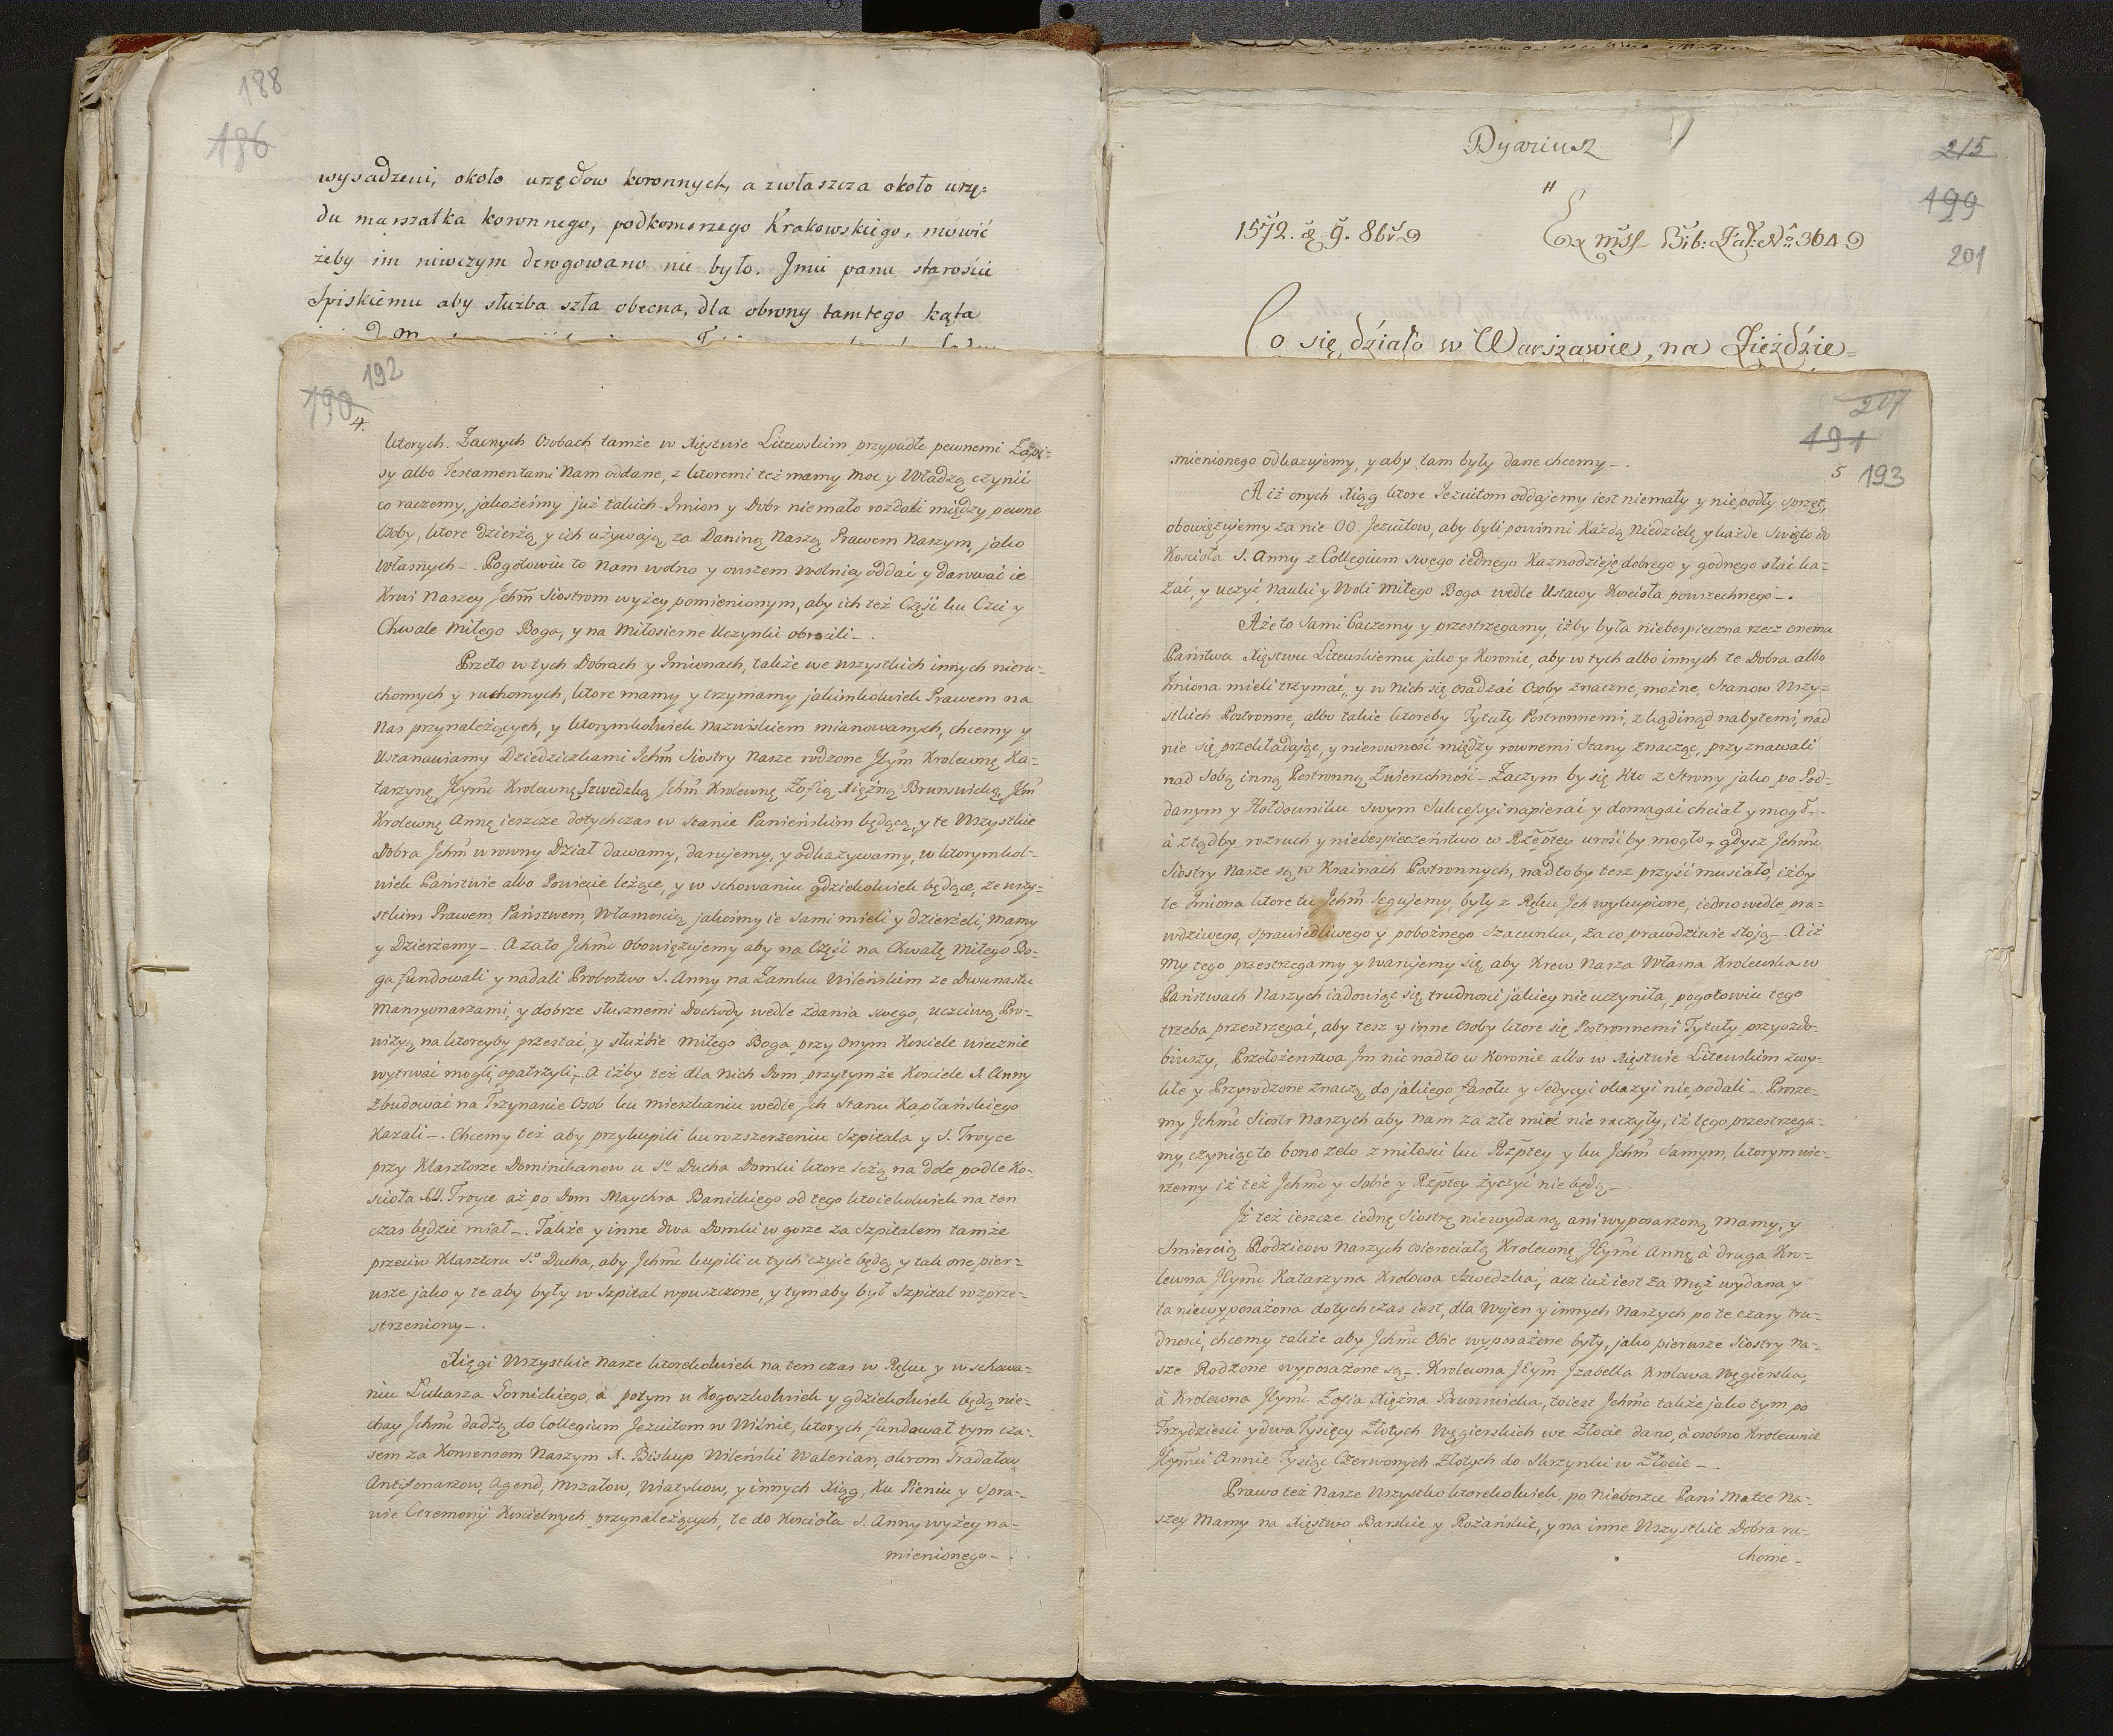 188
186
wysadzeni, około urzędow koronnych, a zwłaszcza około urzę=
du marszałka koronnego, podkomorzego Krakowskiego, mówić
żeby im niwczym derogowano nie było. Jmći panu starośćie
Spiskiemu aby służba szła obecna, dla obrony tamtego kąta
192
190
4.
ktorych. Zacnych Osobach tamże w Xięstwie Litewskim przypadłe pewnemi Zapi-
sy albo Testamentami Nam oddane, z ktoremi też mamy moc y Władzą czynić
co raczemy, jakożeśmy już takich Jmion y Dobr niemało rozdali między pewne
Osoby, ktore dzierżą y ich używają za Daniną Naszą Prawem Naszym, jako
własnych –. Pogotowiu to Nam wolno y owszem wolniey oddać y darować ie
Krwi Naszey Jchm̃ Siostrom wyżey pomienionym, aby ich też Część ku Czci y
Chwale miłego Boga, y na Miłosierne Uczynki obrocili –.
Przeto w tych Dobrach y Jmionach, także we wszystkich innych nieru-
chomych y ruchomych, ktore mamy y trzymamy jakimkolwiek Prawem na
Nas przynależących, y ktorymkolwiek nazwiskiem mianowanych, chcemy y
Ustanawiamy Dziedziczkami Jchm̃ Siostry Nasze rodzone Jeym̃ Krolewnę Ka-
tarzynę Jeym̃ Krolewnę Szwedzką Jchm̃ Krolewnę Zofią Xiężnę Brunswicką, Jchm̃
Krolewnę Annę ieszcze dotychczas w Stanie Panieńskim będącą, y te Wszystkie
Dobra Jchm̃ w rowny Dział dawamy, darujemy, y odkazywamy, w ktorymkol-
wiek Państwie albo Powiecie leżące, y w schowaniu gdziekolwiek będące, ze wszy-
stkim Prawem Państwem, Własnością, jakośmy ie Sami mieli y dzierżeli, mamy
y Dzierżemy –. A zato Jchm̃ obowięzujemy aby na Część na Chwałę Miłego Bo-
ga fundowali y nadali Probostwo S. Anny na Zamku Wileńskim ze Dwunastu
Mansyonarzami, y dobrze słusznemi Dochody wedle zdania swego, uczciwą Pro-
wizyą na ktoreyby przestać, y służbie miłego Boga przy Onym Kosciele wiecznie
wytrwać mogli, opatrzyli –. A iżby też dla Nich Dom przytymże Kosciele S. Anny
zbudować na Trzynaście Osob ku mieszkaniu wedle Jch Stanu Kapłańskiego
Kazali –. Chcemy też aby przykupili ku rozszerzeniu Szpitala y S. Troyce
przy Klasztorze Dominikanow u S° Ducha Domki ktore leżą na dole podle Ko-
scioła S. Troyce aż po Dom Maychra Banickiego od tego ktociekolwiek na ten
czas będzie miał –. Także y inne dwa Domki w gorze za Szpitalem tamże
przeciw Klasztoru S° Ducha, aby Jchm̃ kupili u tych czyie będą, y tak one pier-
wsze jako y te aby były w Szpital wpuszczone, y tym aby był Szpital rozprze-
strzeniony –.
Xięgi Wszystkie Nasze ktorekolwiek na ten czas w Ręku y w schowa-
niu Łukasza Gornickiego, a potym u Kogoszkolwiek y gdziekolwiek będą nie-
chay Jchm̃ dadzą do Collegium Jezuitom w Wilnie, ktorych fundował tym cza-
sem za Konsensem Naszym X. Biskup Wileński Walerian, okrom Gradałow
Antifonarzow, Agend, Mszałow, Wiatykow, y innych Xiąg, Ku Pieniu y Spra-
wie Ceremonij Kościelnych przynależących, te do Kościoła S. Anny wyżey na-
mienionego –
Dyariusz
215
199
201
1572. d. 9. 8br.
Ex mss Bib: Zał: No 304
Co się działo w Warszawie, na Zieździe=
217
191
5 193
mienionego odkazujemy, y aby tam były dane chcemy –.
A iż onych Xiąg ktore Jezuitom oddajemy iest niemały y niepodły sprzęt,
obowięzujemy za nie OO. Jezuitow, aby byli powinni Każdą Niedzielę y każde święto do
Kościoła S. Anny z Collegium swego iednego Kaznodzieję dobrego y godnego słać ka-
zać, y uczyć Nauki y Woli miłego Boga wedle Ustawy Kościoła powszechnego –.
A że to Sami baczemy y przestrzegamy, iżby była niebespieczna rzecz onemu
Państwu Xięstwu Litewskiemu jako y Koronie, aby w tych albo innych te Dobra albo
Jmiona mieli trzymać, y w nich się osadzać Osoby znaczne, możne, Stanow Wszy-
stkich Postronne, albo takie ktoreby Tytuły Postronnemi, z kądinąd nabytemi, nad
nie się przekładając, y nierowność między rownemi Stany znacząc, przyznawali
nad Sobą inną Postronną Zwierzchność – Zaczym by się Kto z Strony jako po Pod-
danym y Hołdowniku swym Sukcessyi napierać y domagać chciał y mogł –.
à ztądby rozruch y niebespieczeństwo w Rzeptey urościby mogło, gdysz Jchm̃
Siostry Nasze są w Krainach Postronnych, nadtoby tesz przyść musiało, iżby
te Jmiona ktore tu Jchm̃ legujemy, były z Ręku Jch wykupione, iedno wedle pra-
wdziwego, sprawiedliwego y pobożnego Szacunku, za co prawdziwie stoją –. A iż
My tego przestrzegamy y warujemy się, aby Krew Nasza Własna Krolewska w
Państwach Naszych iadowiąc się, trudności jakiey nie uczyniła, pogotowiu tego
trzeba przestrzegać, aby tesz y inne Osoby ktore się Postronnemi Tytuły przyozdo-
biwszy, Przełożeństwa Jm nic nadto w Koronie albo w Xięstwie Litewskim zwy-
kłe y Przyrodzone znaczą, do jakiego fasołu y Sedycyi okazyi nie podali –. Prosze-
my Jchm̃ Siostr Naszych aby nam za złe mieć nie raczyły, iż tego przestrzega-
my, czyniąc to bono zelo z miłości ku Rzptey y ku Jchm̃ Samym, ktorym wie-
rzemy iż też Jchm̃ y Sobie y Rzptey życzyć nie będą –.
Jż też ieszcze iednę Siostrę niewydaną ani wyposarzoną mamy, y
Smiercią Rodzicow Naszych osierociałą Krolewnę Jeym̃ Annę, à druga Kro-
lewna Jeym̃ Katarzyna Krolowa Szwedzka, acz już iest za Mąż wydana y
ta niewyposażona dotychczas iest, dla Wojen y innych Naszych po te czasy tru-
dności, chcemy także aby Jchm̃ Obie wyposażone były, jako pierwsze Siostry Na-
sze Rodzone wyposażone są –. Krolewna Jeym̃ Jzabella Krolowa Węgierska,
à Krolewna Jeym̃ Zofia Xiężna Brunswicka, toiest Jchm̃ także jako tym po
Trzydzieści y dwa Tysięcy Złotych Węgierskich we Złocie dano, à osobno Krolewnie
Jeym̃ Annie Tysiąc Czerwonych Złotych do Skrzynki w Złocie –.
Prawo też Nasze Wszystko ktorekolwiek, po Nieboszce Pani Matce Na-
szey mamy na Xięstwo Barskie y Rożańskie, y na inne Wszystkie Dobra ru-
chome –